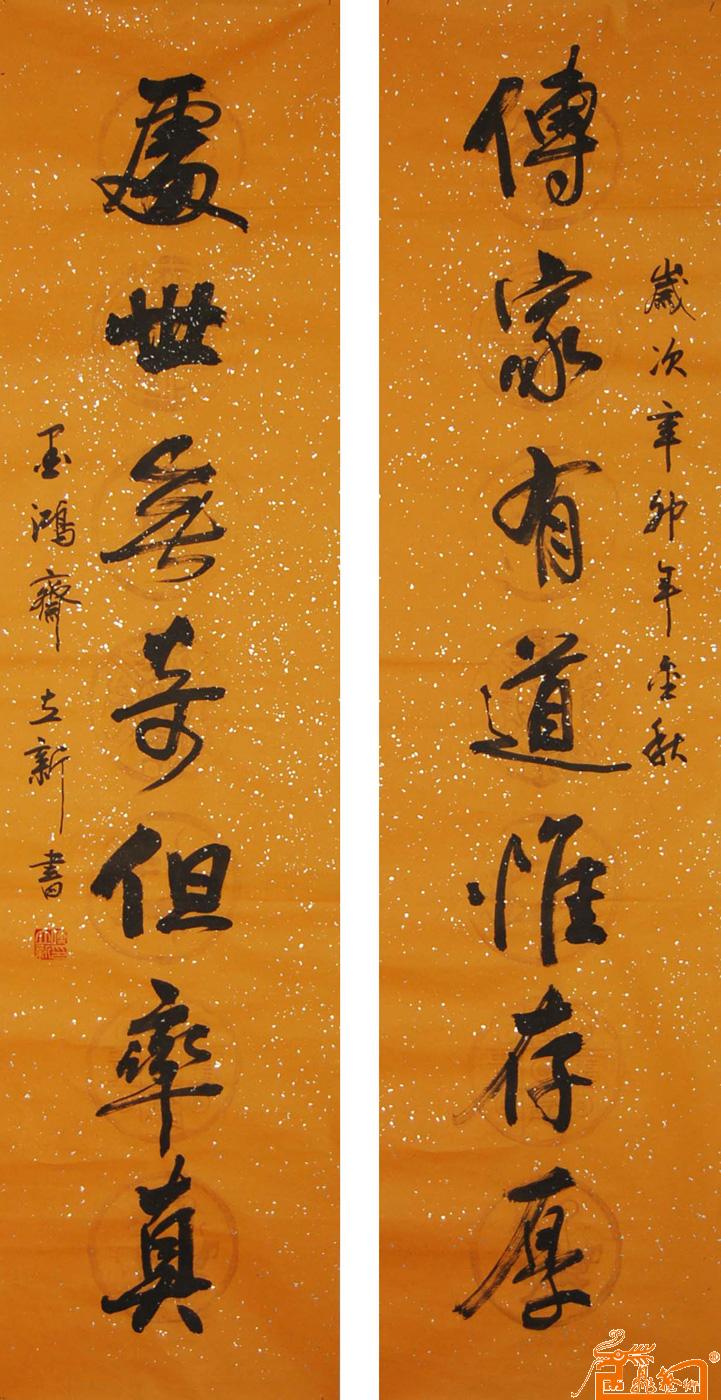 歲次辛卯年金秋
傳家有道惟存厚
處世無奇但率真
墨鴻齋立新書